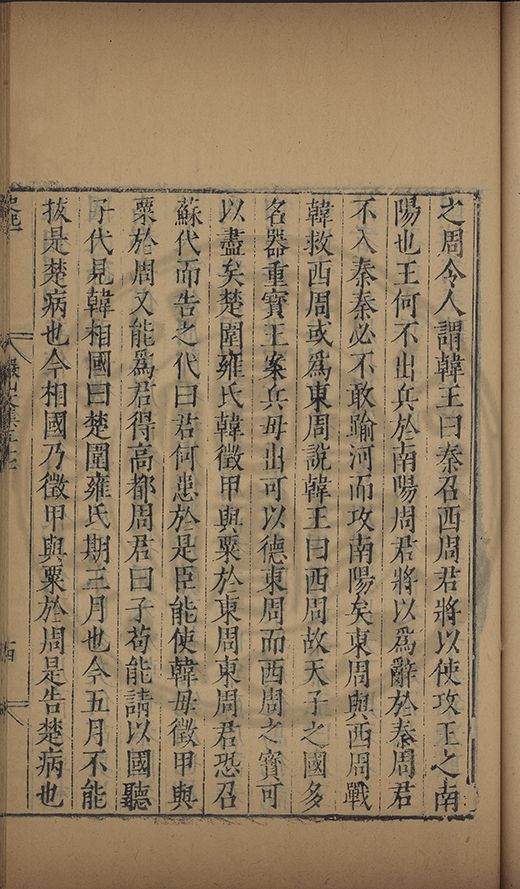 之周令人謂韓王曰秦召西周君將以使攻王之南
陽也王何不出兵於南陽周君將以為辭於秦周君
不入秦秦必不敢踰河而攻南陽矣東周與西周戰
韓救西周或為東周說韓王曰西周故天子之國多
名器重寶王案兵毋出可以德東周而西周之寶可
以盡矣楚圍雍氏韓徵甲與粟於東周東周君恐召
蘇代而告之代曰君何患於是臣能使韓毋徵甲與
粟於周又能為君得高都周君曰子苟能請以國聽
子代見韓相國曰楚圍雍氏期三月也今五月不能
拔是楚病也今相國乃徵甲與粟於周是告楚病也